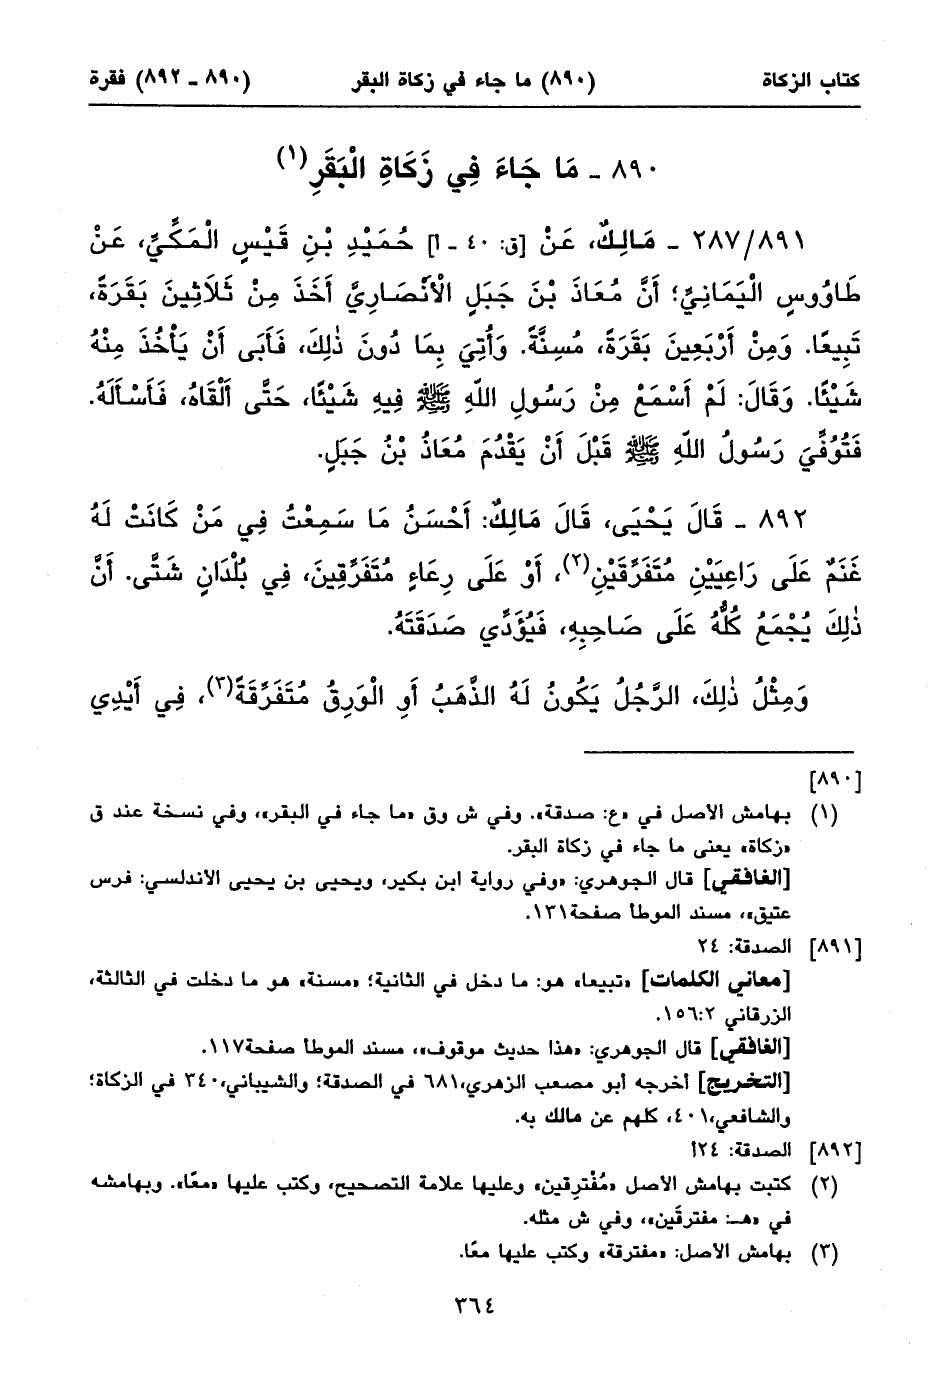 كتاب الزكاة (٨٩٠) ما جاء في زكاة البقر (٨٩٠ ـ ٨٩٢) فقرة
٨٩٠ ـ مَا جَاءَ فِي زَكَاةِ الْبَقَرِ(١)
٢٨٧/٨٩١ ـ مَالِكٌ، عَنْ [ق: ٤٠ ـ أ] حُمَيْدِ بْنِ قَيْسٍ الْمَكِّيِّ، عَنْ
طَاوُوسٍ الْيَمَانِيِّ؛ أَنَّ مُعَاذَ بْنَ جَبَلٍ الْأَنْصَارِيَّ أَخَذَ مِنْ ثَلَاثِينَ بَقَرَةً،
تَبِيعًا. وَمِنْ أَرْبَعِينَ بَقَرَةً، مُسِنَّةً. وَأُتِيَ بِمَا دُونَ ذٰلِكَ، فَأَبَى أَنْ يَأْخُذَ مِنْهُ
شَيْئًا. وَقَالَ: لَمْ أَسْمَعْ مِنْ رَسُولِ اللّٰهِ ﷺ فِيهِ شَيْئًا، حَتَّى أَلْقَاهُ، فَأَسْأَلَهُ.
فَتُوُفِّيَ رَسُولُ اللّٰهِ ﷺ قَبْلَ أَنْ يَقْدُمَ مُعَاذُ بْنُ جَبَلٍ.
٨٩٢ ـ قَالَ يَحْيَى، قَالَ مَالِكٌ: أَحْسَنُ مَا سَمِعْتُ فِي مَنْ كَانَتْ لَهُ
غَنَمٌ عَلَى رَاعِيَيْنِ مُتَفَرِّقَيْنِ(٢)، أَوْ عَلَى رِعَاءٍ مُتَفَرِّقِينَ، فِي بُلْدَانٍ شَتَّى. أَنَّ
ذٰلِكَ يُجْمَعُ كُلُّهُ عَلَى صَاحِبِهِ، فَيُؤَدِّي صَدَقَتَهُ.
وَمِثْلُ ذٰلِكَ، الرَّجُلُ يَكُونُ لَهُ الذَّهَبُ أَوِ الْوَرِقُ مُتَفَرِّقَةً(٣)، فِي أَيْدِي
[٨٩٠]
(١) بهامش الأصل في «ع: صدقة». وفي ش وق «ما جاء في البقر»، وفي نسخة عند ق
«زكاة» يعنى ما جاء في زكاة البقر.
[الغافقي] قال الجوهري: «وفي رواية ابن بكير، ويحيى بن يحيى الأندلسي: فرس
عتيق»، مسند الموطأ صفحة١٣١.
[٨٩١] الصدقة: ٢٤
[معاني الكلمات] «تبيعا» هو: ما دخل في الثانية؛ «مسنة» هو ما دخلت في الثالثة،
الزرقاني ١٥٦:٢.
[الغافقي] قال الجوهري: «هذا حديث موقوف»، مسند الموطأ صفحة١١٧.
[التخريج] أخرجه أبو مصعب الزهري،٦٨١ في الصدقة؛ والشيباني،٣٤٠ في الزكاة؛
والشافعي،٤٠١، كلهم عن مالك به.
[٨٩٢] الصدقة: ٢٤أ
(٢) كتبت بهامش الأصل «مُفْتَرِقين» وعليها علامة التصحيح، وكتب عليها «معًا». وبهامشه
في «هـ: مفترقَين»، وفي ش مثله.
(٣) بهامش الأصل: «مفترقة» وكتب عليها معًا.
٣٦٤